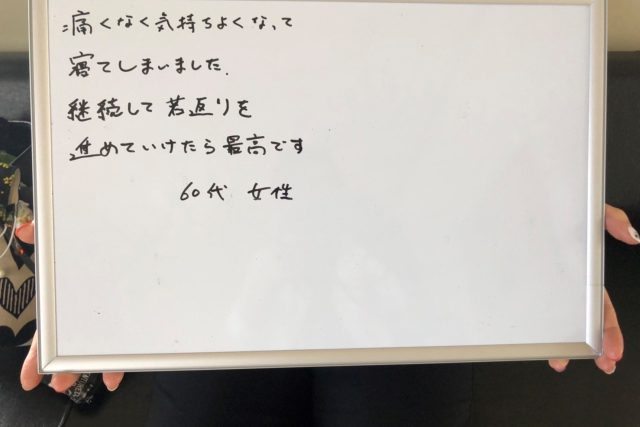 痛くなく気持ちよくなって
寝てしまいました.
継続して若返りを
進めていけたら最高です
60代 女性